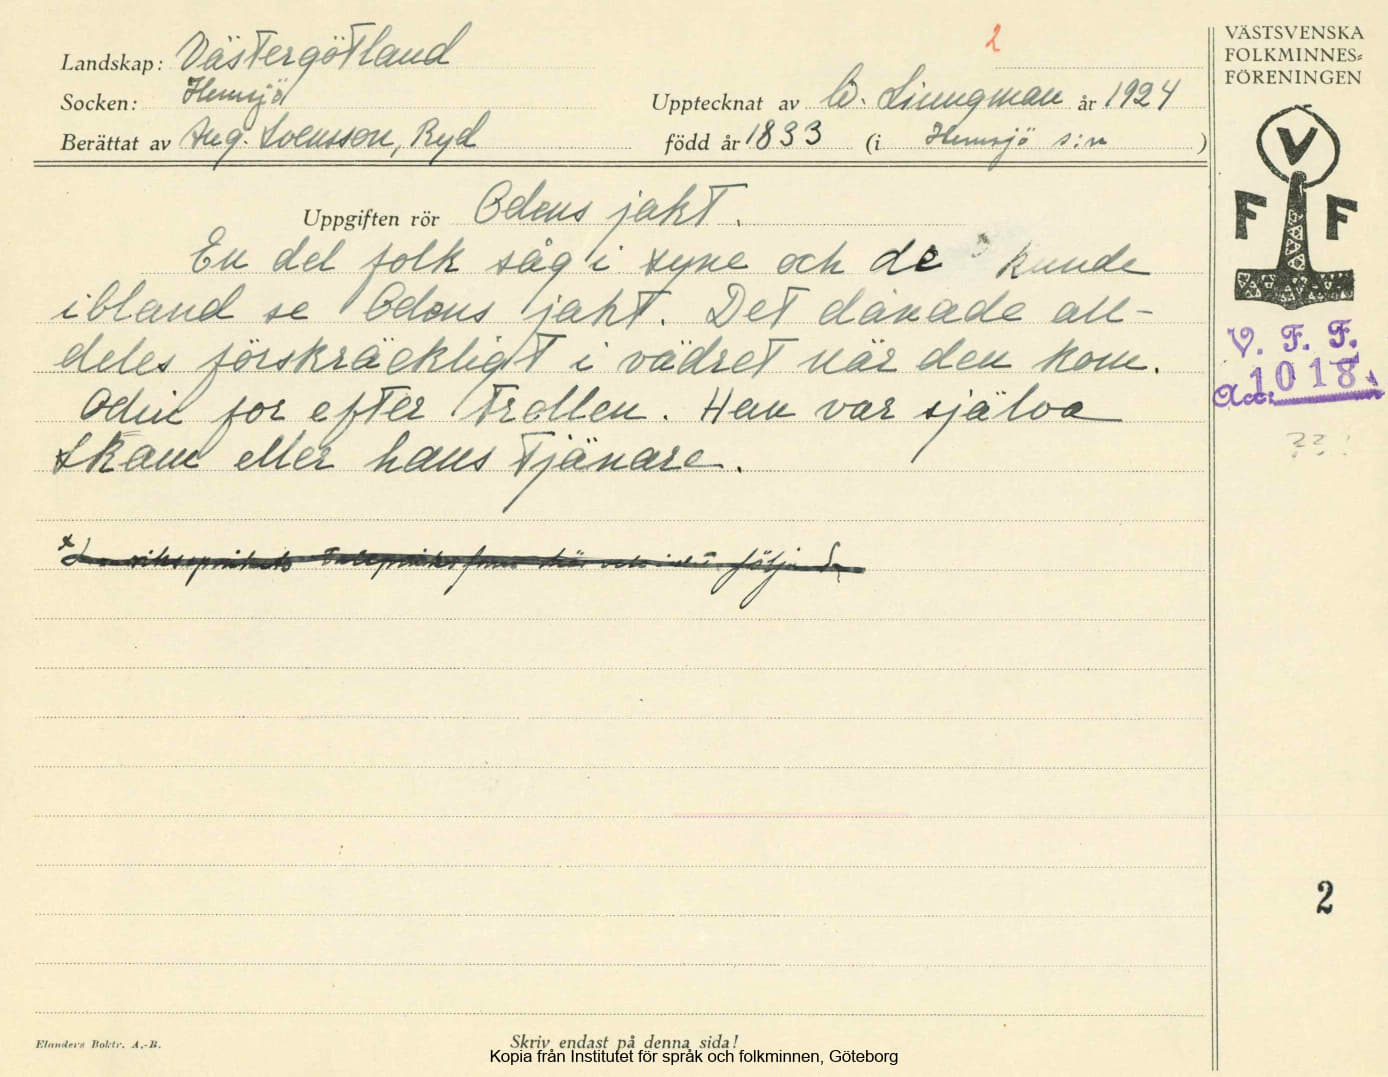 2
VÄSTSVENSKA
FOLKMINNES=
FÖRENINGEN
Landskap: Västergötland
Socken: Hemsjö
Upptecknat av W. Liungman år 1924
Berättat av Aug. Svensson, Ryd
född år 1833 (i Hemsjö s:n )
V
F F
Uppgiften rör Odens jakt.
En del folk såg i syne och de kunde
ibland se Odens jakt. Det dånade all-
deles förskräckligt i vädret när den kom.
Odin for efter trollen. Han var själva
Skam eller hans tjänare.
V. F. F.
Acc: 1018
??!
2
Elanders Boktr. A.-B.
Skriv endast på denna sida!
Kopia från Institutet för språk och folkminnen, Göteborg